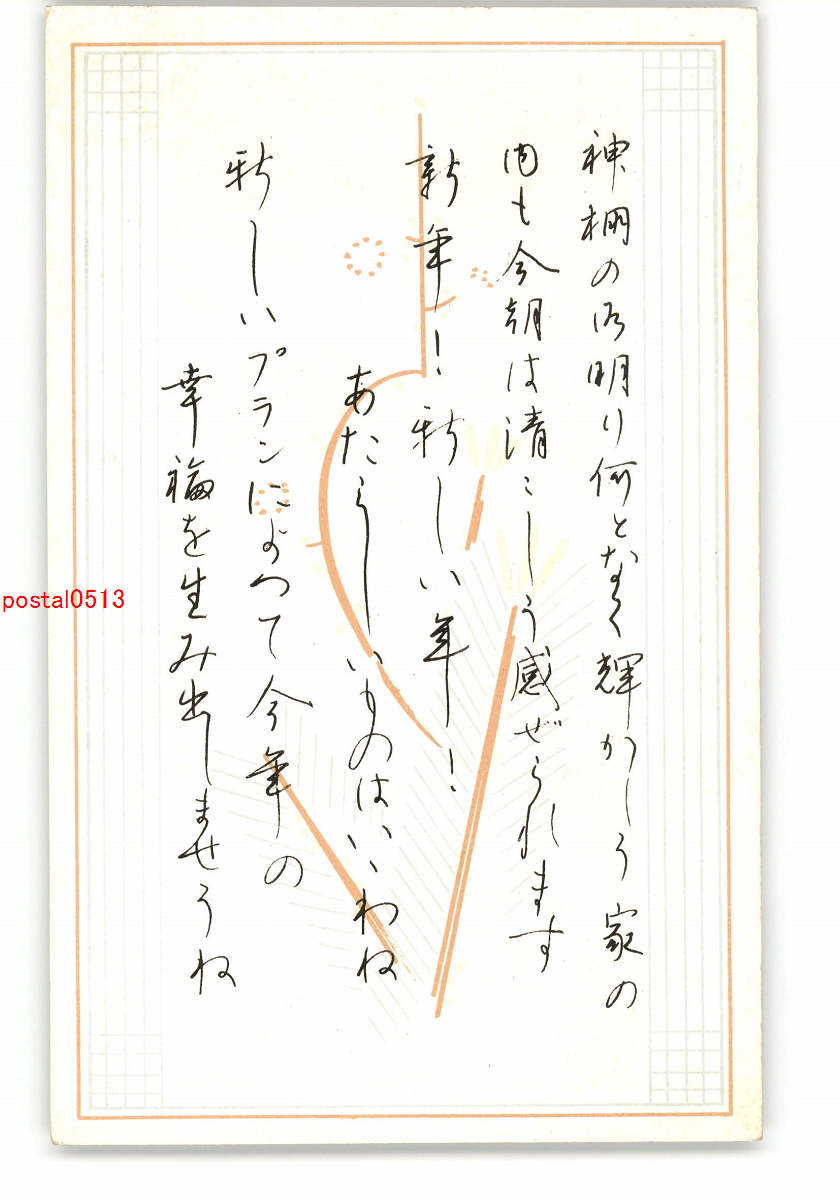 神棚の御明り何となく輝かしう家の
内も今朝は清々しう感ぜられます
新年！新しい年！
あたらしいものはいゝわね
新しいプランによつて今年の
幸福を生み出しませうね
postal0513